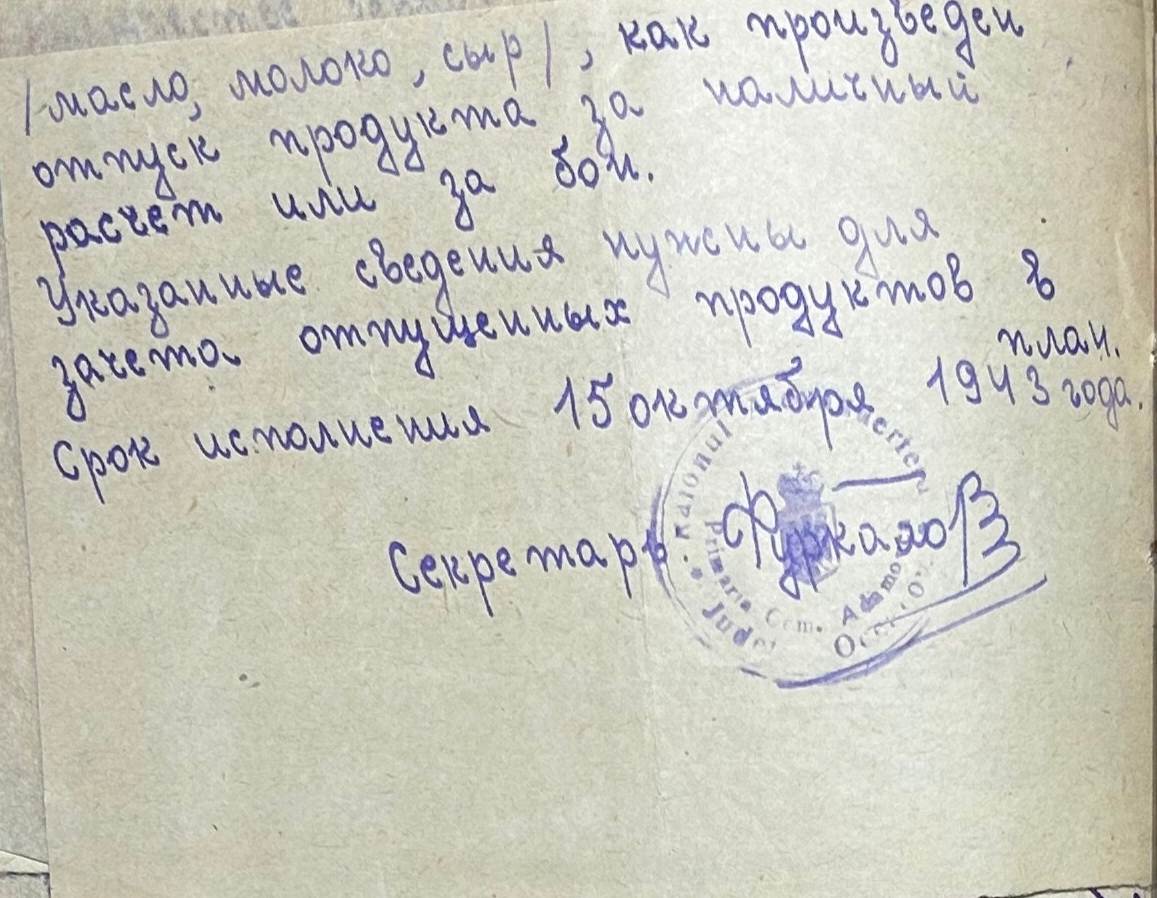 /масло, молоко, сыр/, как произведен
отпуск продукта за наличный
расчет или за бон.
Указанные сведения нужны для
зачета отпущенных продуктов в
план.
Срок исполнения 15 октября 1943 года.
Секретарь Фуркало
Raionul
Primaria Com.
Judeţ